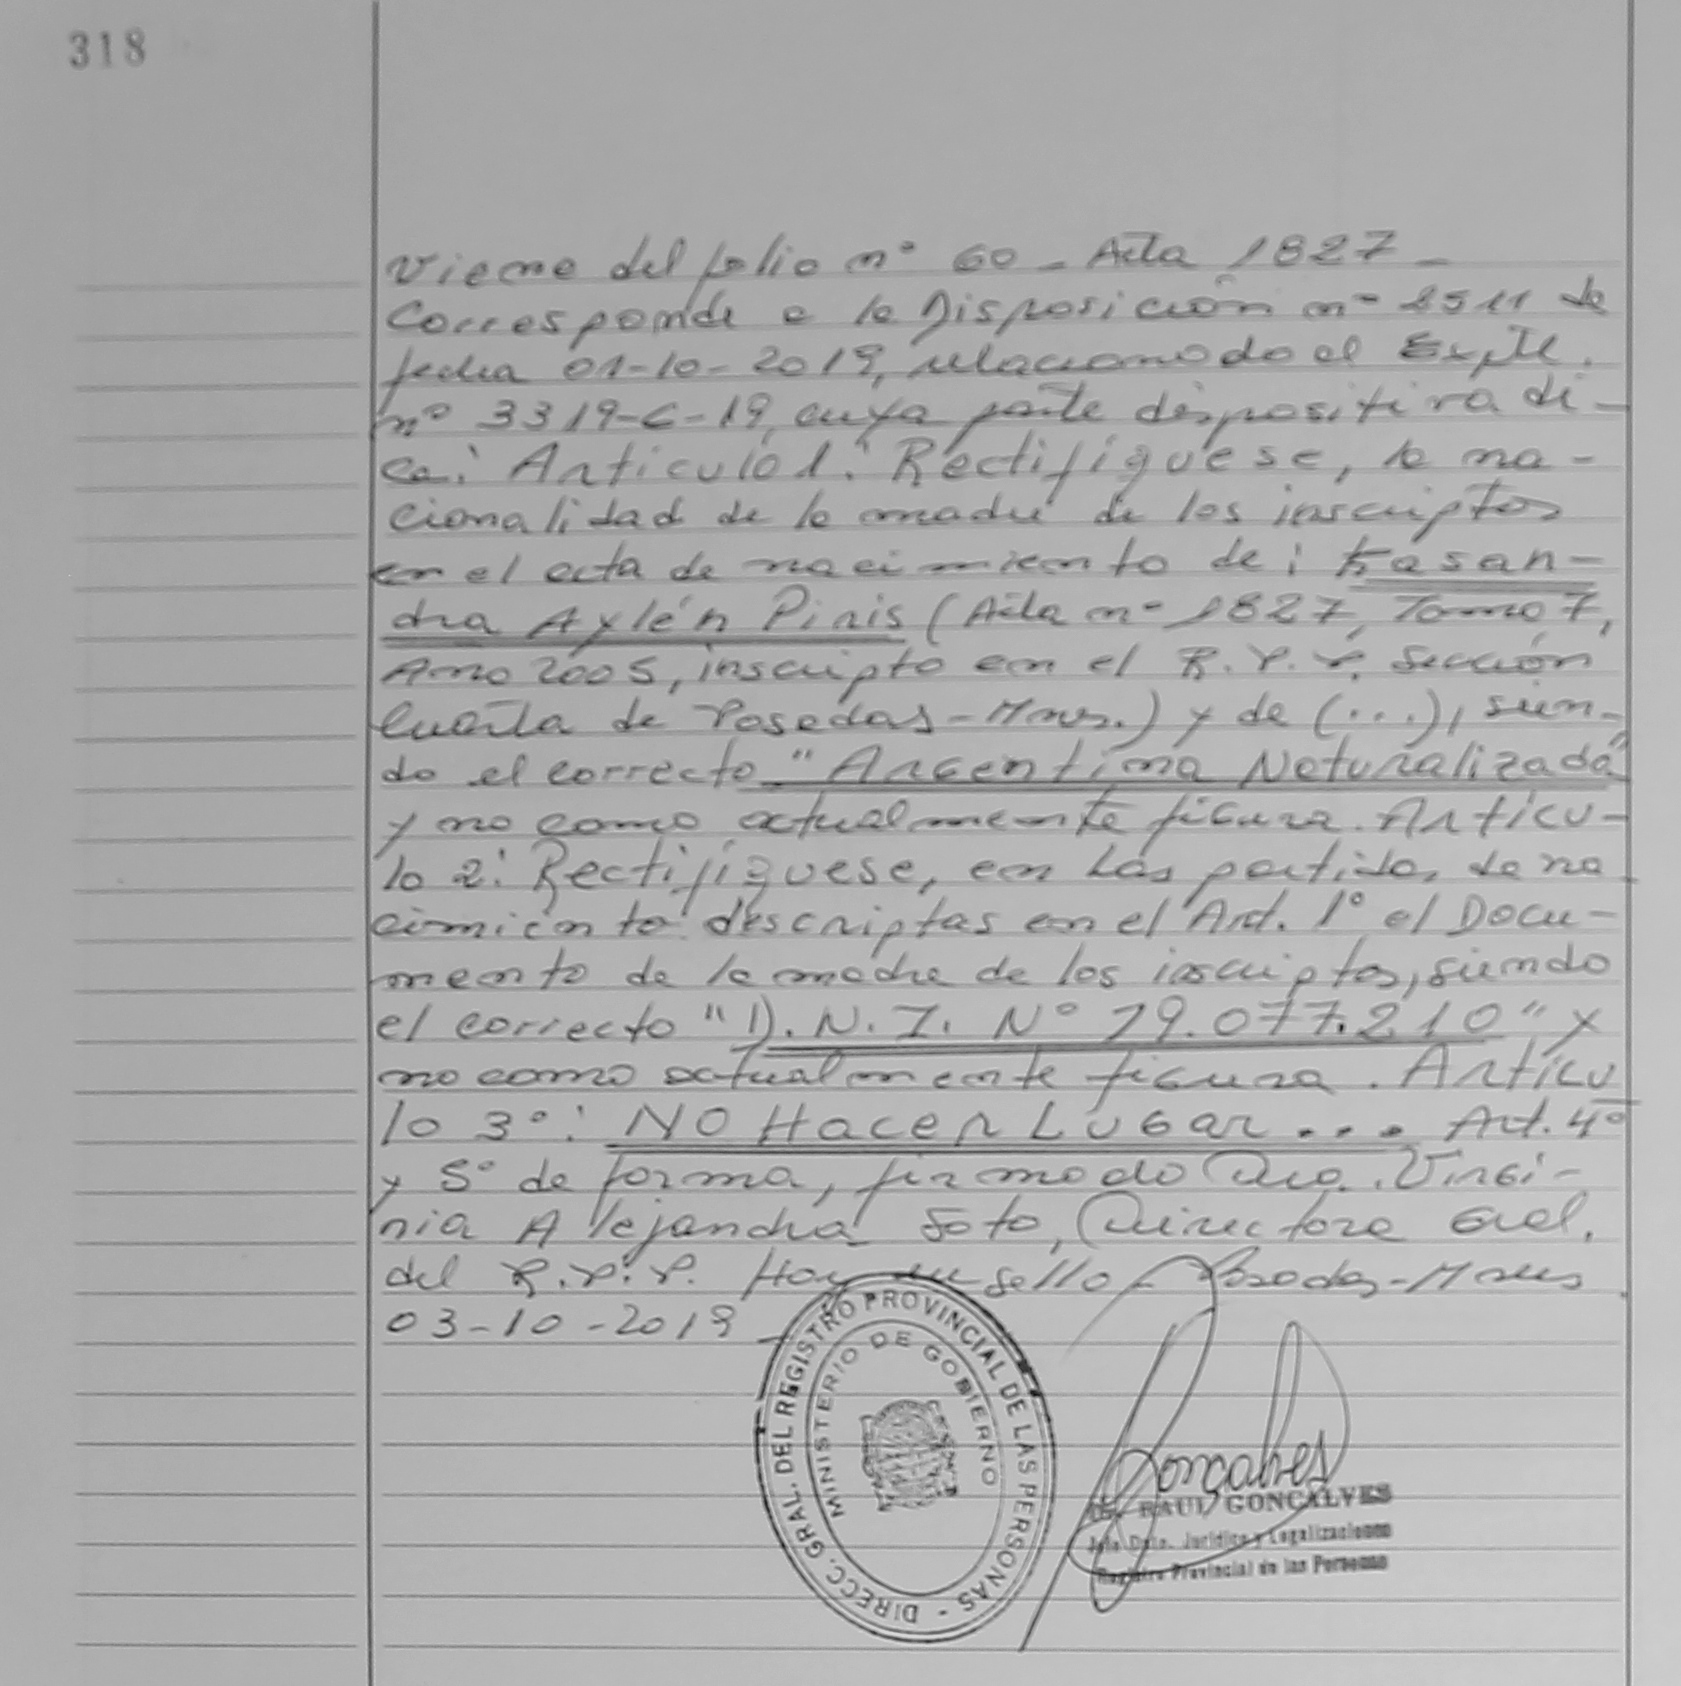 318
Viene del folio n° 60 - Acta 1827 -
Corresponde a la Disposición n° 2511 de
fecha 01-10-2019, relacionado al Expte.
n° 3319-C-19, cuya parte dispositiva di-
ce: Articulo 1: Rectifíquese, la na-
cionalidad de la madre de los inscriptos
en el acta de nacimiento de: Kasan-
dra Aylén Piris (Acta n° 1827, Tomo 7,
Año 2005, inscripto en el R.P.P. Sección
Cuarta de Posadas-Mnes.) y de (...), sien-
do el correcto "Argentina Naturalizada"
y no como actualmente figura. Articu-
lo 2: Rectifíquese, en las partidas de na-
cimiento descriptas en el Art. 1° el Docu-
mento de la madre de los inscriptos, siendo
el correcto "D.N.I. N° 19.077.210" y
no como actualmente figura. Artícu
lo 3°: NO Hacer Lugar... Art. 4°
y 5° de forma, firmado Dra. Virgi-
nia Alejandra Soto, Directora Gral.
del R.P.P. Hay un sello - Posadas-Mnes
03-10-2019
DIRECC. GRAL. DEL REGISTRO PROVINCIAL DE LAS PERSONAS -
MINISTERIO DE GOBIERNO
Gonçalves
RAUL GONCALVES
Jefe Dpto. Jurídico y Legalizaciones
Registro Provincial de las Personas